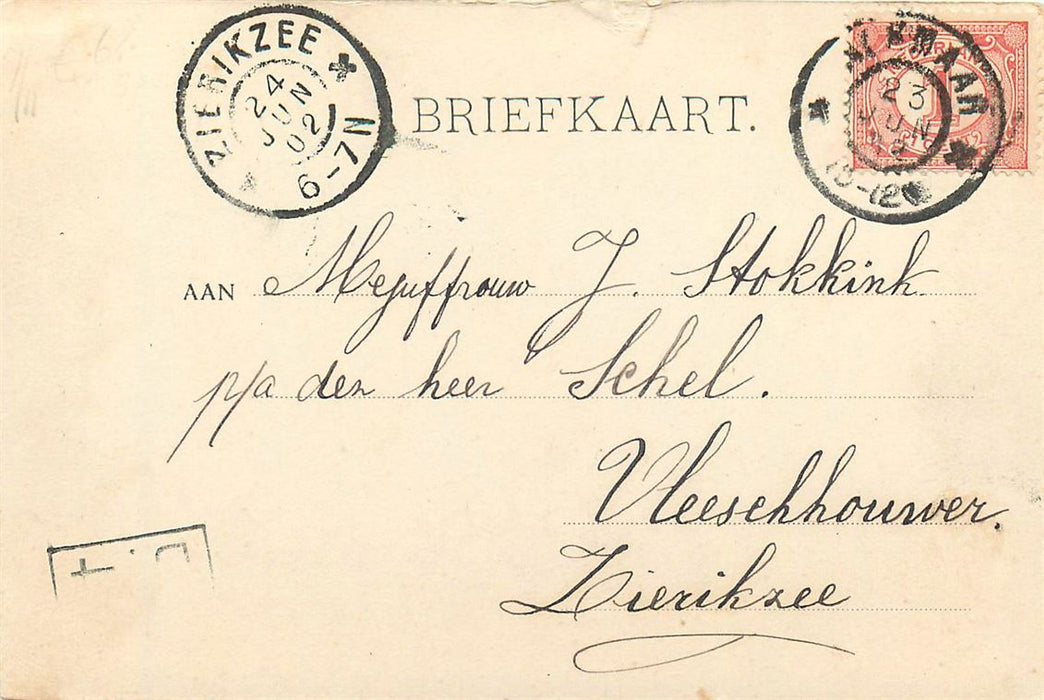 ZIERIKZEE
24
JUN
02
6-7N
BRIEFKAART.
ALKMAAR
23
JUN
AAN Mejuffrouw J. Stokkink.
p/a den heer Schel.
Vleeschhouwer.
Zierikzee